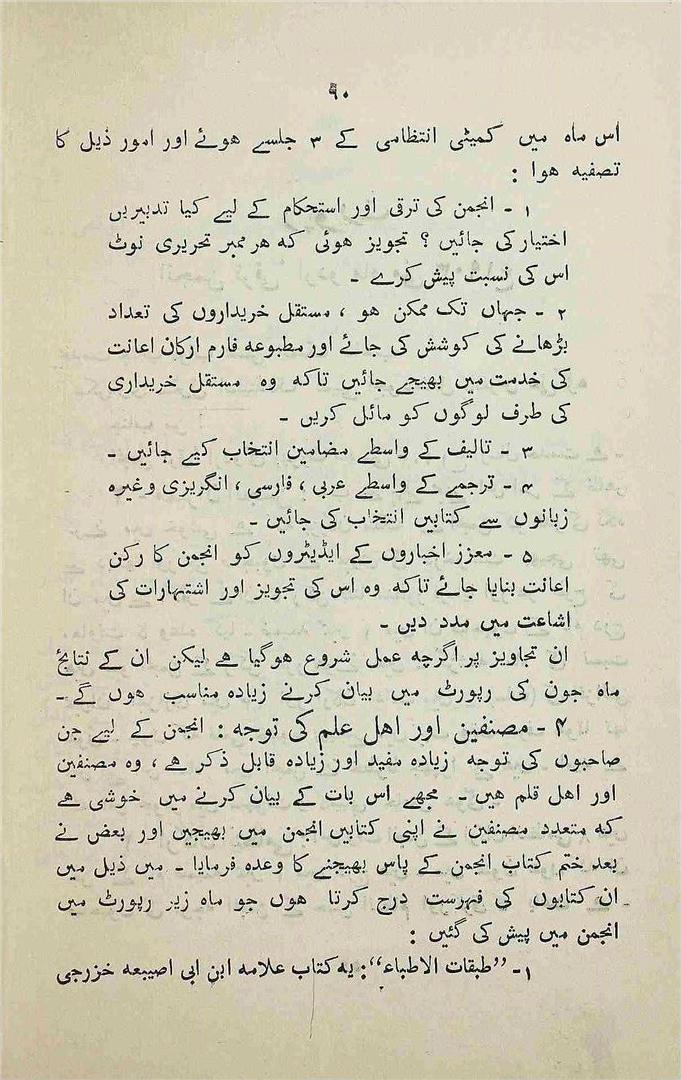 ۹۰
اس ماہ میں کمیٹی انتظامی کے ۳ جلسے ہوئے اور امور ذیل کا
تصفیہ ہوا :
۱ - انجمن کی ترقی اور استحکام کے لیے کیا تدبیریں
اختیار کی جائیں ؟ تجویز ہوئی کہ ہر ممبر تحریری نوٹ
اس کی نسبت پیش کرے -
۲ - جہاں تک ممکن ہو ، مستقل خریداروں کی تعداد
بڑھانے کی کوشش کی جائے اور مطبوعہ فارم ارکان اعانت
کی خدمت میں بھیجے جائیں تاکہ وہ مستقل خریداری
کی طرف لوگوں کو مائل کریں -
۳ - تالیف کے واسطے مضامین انتخاب کیے جائیں -
۴ - ترجمے کے واسطے عربی ، فارسی ، انگریزی وغیرہ
زبانوں سے کتابیں انتخاب کی جائیں -
۵ - معزز اخباروں کے ایڈیٹروں کو انجمن کا رکن
اعانت بنایا جائے تاکہ وہ اس کی تجویز اور اشتہارات کی
اشاعت میں مدد دیں -
ان تجاویز پر اگرچہ عمل شروع ہوگیا ہے لیکن ان کے نتائج
ماہ جون کی رپورٹ میں بیان کرنے زیادہ مناسب ہوں گے -
۴ - مصنفین اور اہل علم کی توجہ : انجمن کے لیے جن
صاحبوں کی توجہ زیادہ مفید اور زیادہ قابل ذکر ہے ، وہ مصنفین
اور اہل قلم ہیں - مجھے اس بات کے بیان کرنے میں خوشی ہے
کہ متعدد مصنفین نے اپنی کتابیں انجمن میں بھیجیں اور بعض نے
بعد ختم کتاب انجمن کے پاس بھیجنے کا وعدہ فرمایا - میں ذیل میں
ان کتابوں کی فہرست درج کرتا ہوں جو ماہ زیر رپورٹ میں
انجمن میں پیش کی گئیں :
۱- ”طبقات الاطباء“: یہ کتاب علامہ ابن ابی اصیبعہ خزرجی